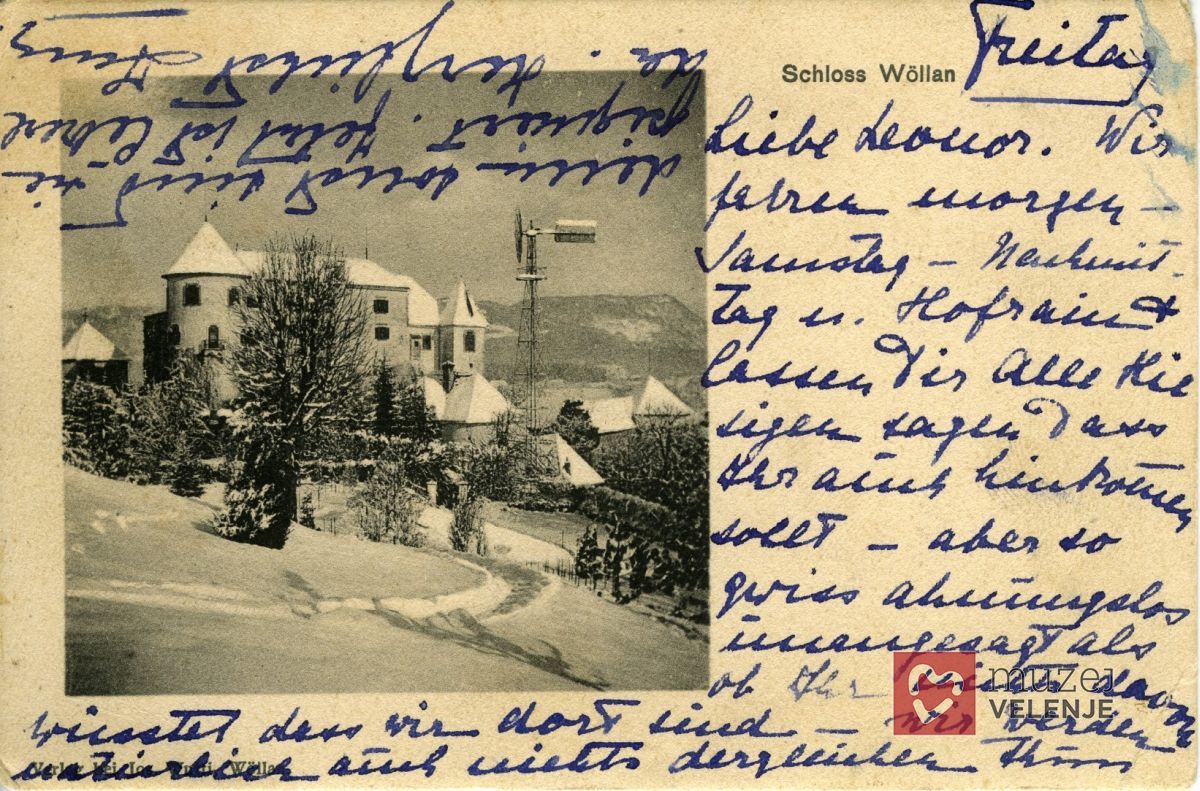 Schloss Wöllan
Freitag
Liebe Leonor. Wir
fahren morgen –
Samstag – Nachmit-
tag n. Hofrain &
lassen Dir Alle Hie
sigen sagen dass
Ihr auch hinkom̄en
sollt – aber so
gwiss ahnungslos
unangesagt als
ob Ihr nicht davon
wüsstet dass wir dort sind – wir werden
natürlich auch nichts dergleichen thun
denn sonst sind sie
piquiert. Jetzt ist
da. Herzlichst
Verlag bei Wöllan
muzej
VELENJE